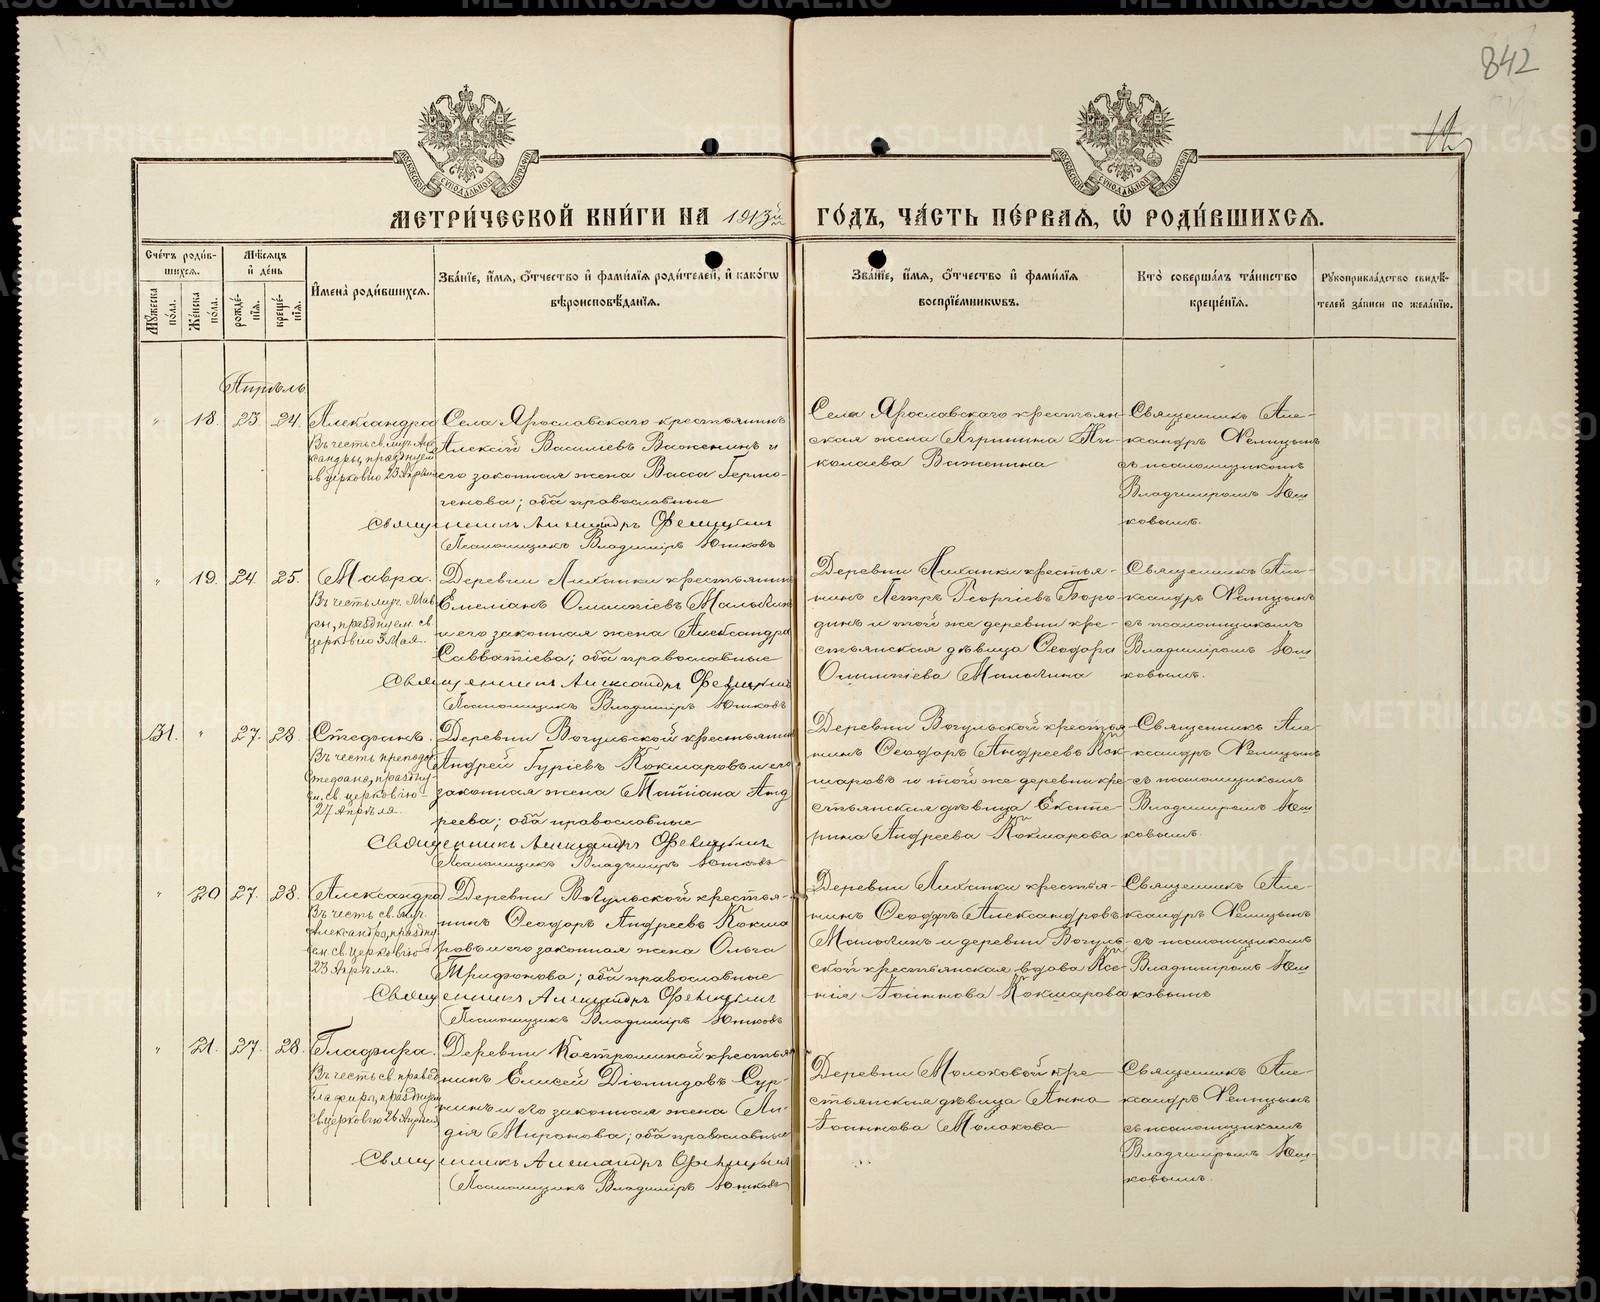 842
МЕТРИ́ЧЕСКОЙ КНИ́ГИ НА 1913й ГО́ДЪ, ЧА́СТЬ ПЕ́РВАЯ, Ѡ҆ РОДИ́ВШИХСЯ.
Сче́тъ роди́вшихся.
Му́жеска по́ла.
Же́нска по́ла.
Мѣ́сяцъ и҆ де́нь
рожде́нїя.
креще́нїя.
И҆мена̀ роди́вшихся.
Зва́нїе, и҆́мя, ѻ҆́тчество и҆ фами́лїя роди́телей, и҆ како́гѡ вѣроисповѣ́данїя.
Зва́нїе, и҆́мя, ѻ҆́тчество и҆ фами́лїя воспрїе́мникѡвъ.
Кто̀ соверша́лъ та́инство креще́нїя.
Рꙋкоприкла́дство свидѣ́телей за́писи по жела́нїю.
Апрѣль
" 18. 23 24.
Александра
Въ честь св. муч. Алек
сандры, празднуем.
св церковію 23 Апрѣля
Села Ярославскаго крестьянинъ
Алексій Василіевъ Важенинъ и
его законная жена Васса Гермо-
генова; оба православные
Священникъ Александръ Феницынъ
Псаломщикъ Владиміръ Юшковъ
Села Ярославскаго крестьян-
ская жена Агрипина Ни-
колаева Важенина
Священникъ Але-
ксандръ Феницынъ
съ псаломщикомъ
Владиміромъ Юш
ковымъ.
" 19. 24. 25.
Мавра.
Въ честь муч. Мав
ры, празднуем. св.
церковію 3 Мая.
Деревни Лиханки крестьянинъ
Емеліанъ Олимпіевъ Малыгинъ
и его законная жена Александра
Савватіева; оба православные
Священникъ Александръ Феницынъ
Псаломщикъ Владиміръ Юшковъ
Деревни Лиханки крестья-
нинъ Петръ Георгіевъ Боро-
динъ и той же деревни кре-
стьянская дѣвица Ѳеодора
Олимпіева Малыгина
Священникъ Але-
ксандръ Феницынъ
съ псаломщикомъ
Владиміромъ Юш
ковымъ.
31. " 27. 28
Стефанъ.
Въ честь преподоб.
Стефана, праздну-
ем. св церковію
27 Апрѣля.
Деревни Вогульской крестьянинъ
Андрей Гуріевъ Кокшаровъ и его
законная жена Татіана Анд
реева; оба православные
Священникъ Александръ Феницынъ
Псаломщикъ Владиміръ Юшковъ
Деревни Вогульской крестья-
нинъ Ѳеодоръ Андреевъ Кок-
шаровъ и той же деревни кре-
стьянская дѣвица Екате-
рина Андреева Кокшарова
Священникъ Але-
ксандръ Феницынъ
съ псаломщикомъ
Владиміромъ Юш
ковымъ.
" 20 27. 28.
Александра
Въ честь св. муч.
Александры, праздну
ем. св. церковію
23 Апрѣля.
Деревни Вогульской крестья-
нинъ Ѳеодоръ Андреевъ Кокша
ровъ и его законная жена Ольга
Трифонова; оба православные
Священникъ Александръ Феницынъ
Псаломщикъ Владиміръ Юшковъ
Деревни Лиханки крестья-
нинъ Ѳеодоръ Александровъ
Малыгинъ и деревни Вогуль-
ской крестьянская вдова Ксе-
нія Іоаннова Кокшарова
Священникъ Але-
ксандръ Феницынъ
съ псаломщикомъ
Владиміромъ Юш
ковымъ
" 21. 27. 28.
Глафира.
Въ честь св. правед
Глафиры, празднуем
св церковію 26 Апрѣля
Деревни Костроминой крестья
нинъ Елисей Діомидовъ Сур-
нинъ и его законная жена Ли-
дія Миронова; оба православные
Священникъ Александръ Феницынъ
Псаломщикъ Владиміръ Юшковъ
Деревни Молоковой кре-
стьянская дѣвица Анна
Іоаннова Молокова
Священникъ Але-
ксандръ Феницынъ
съ псаломщикомъ
Владиміромъ Юш-
ковымъ.
METRIKI.GASO-URAL.RU